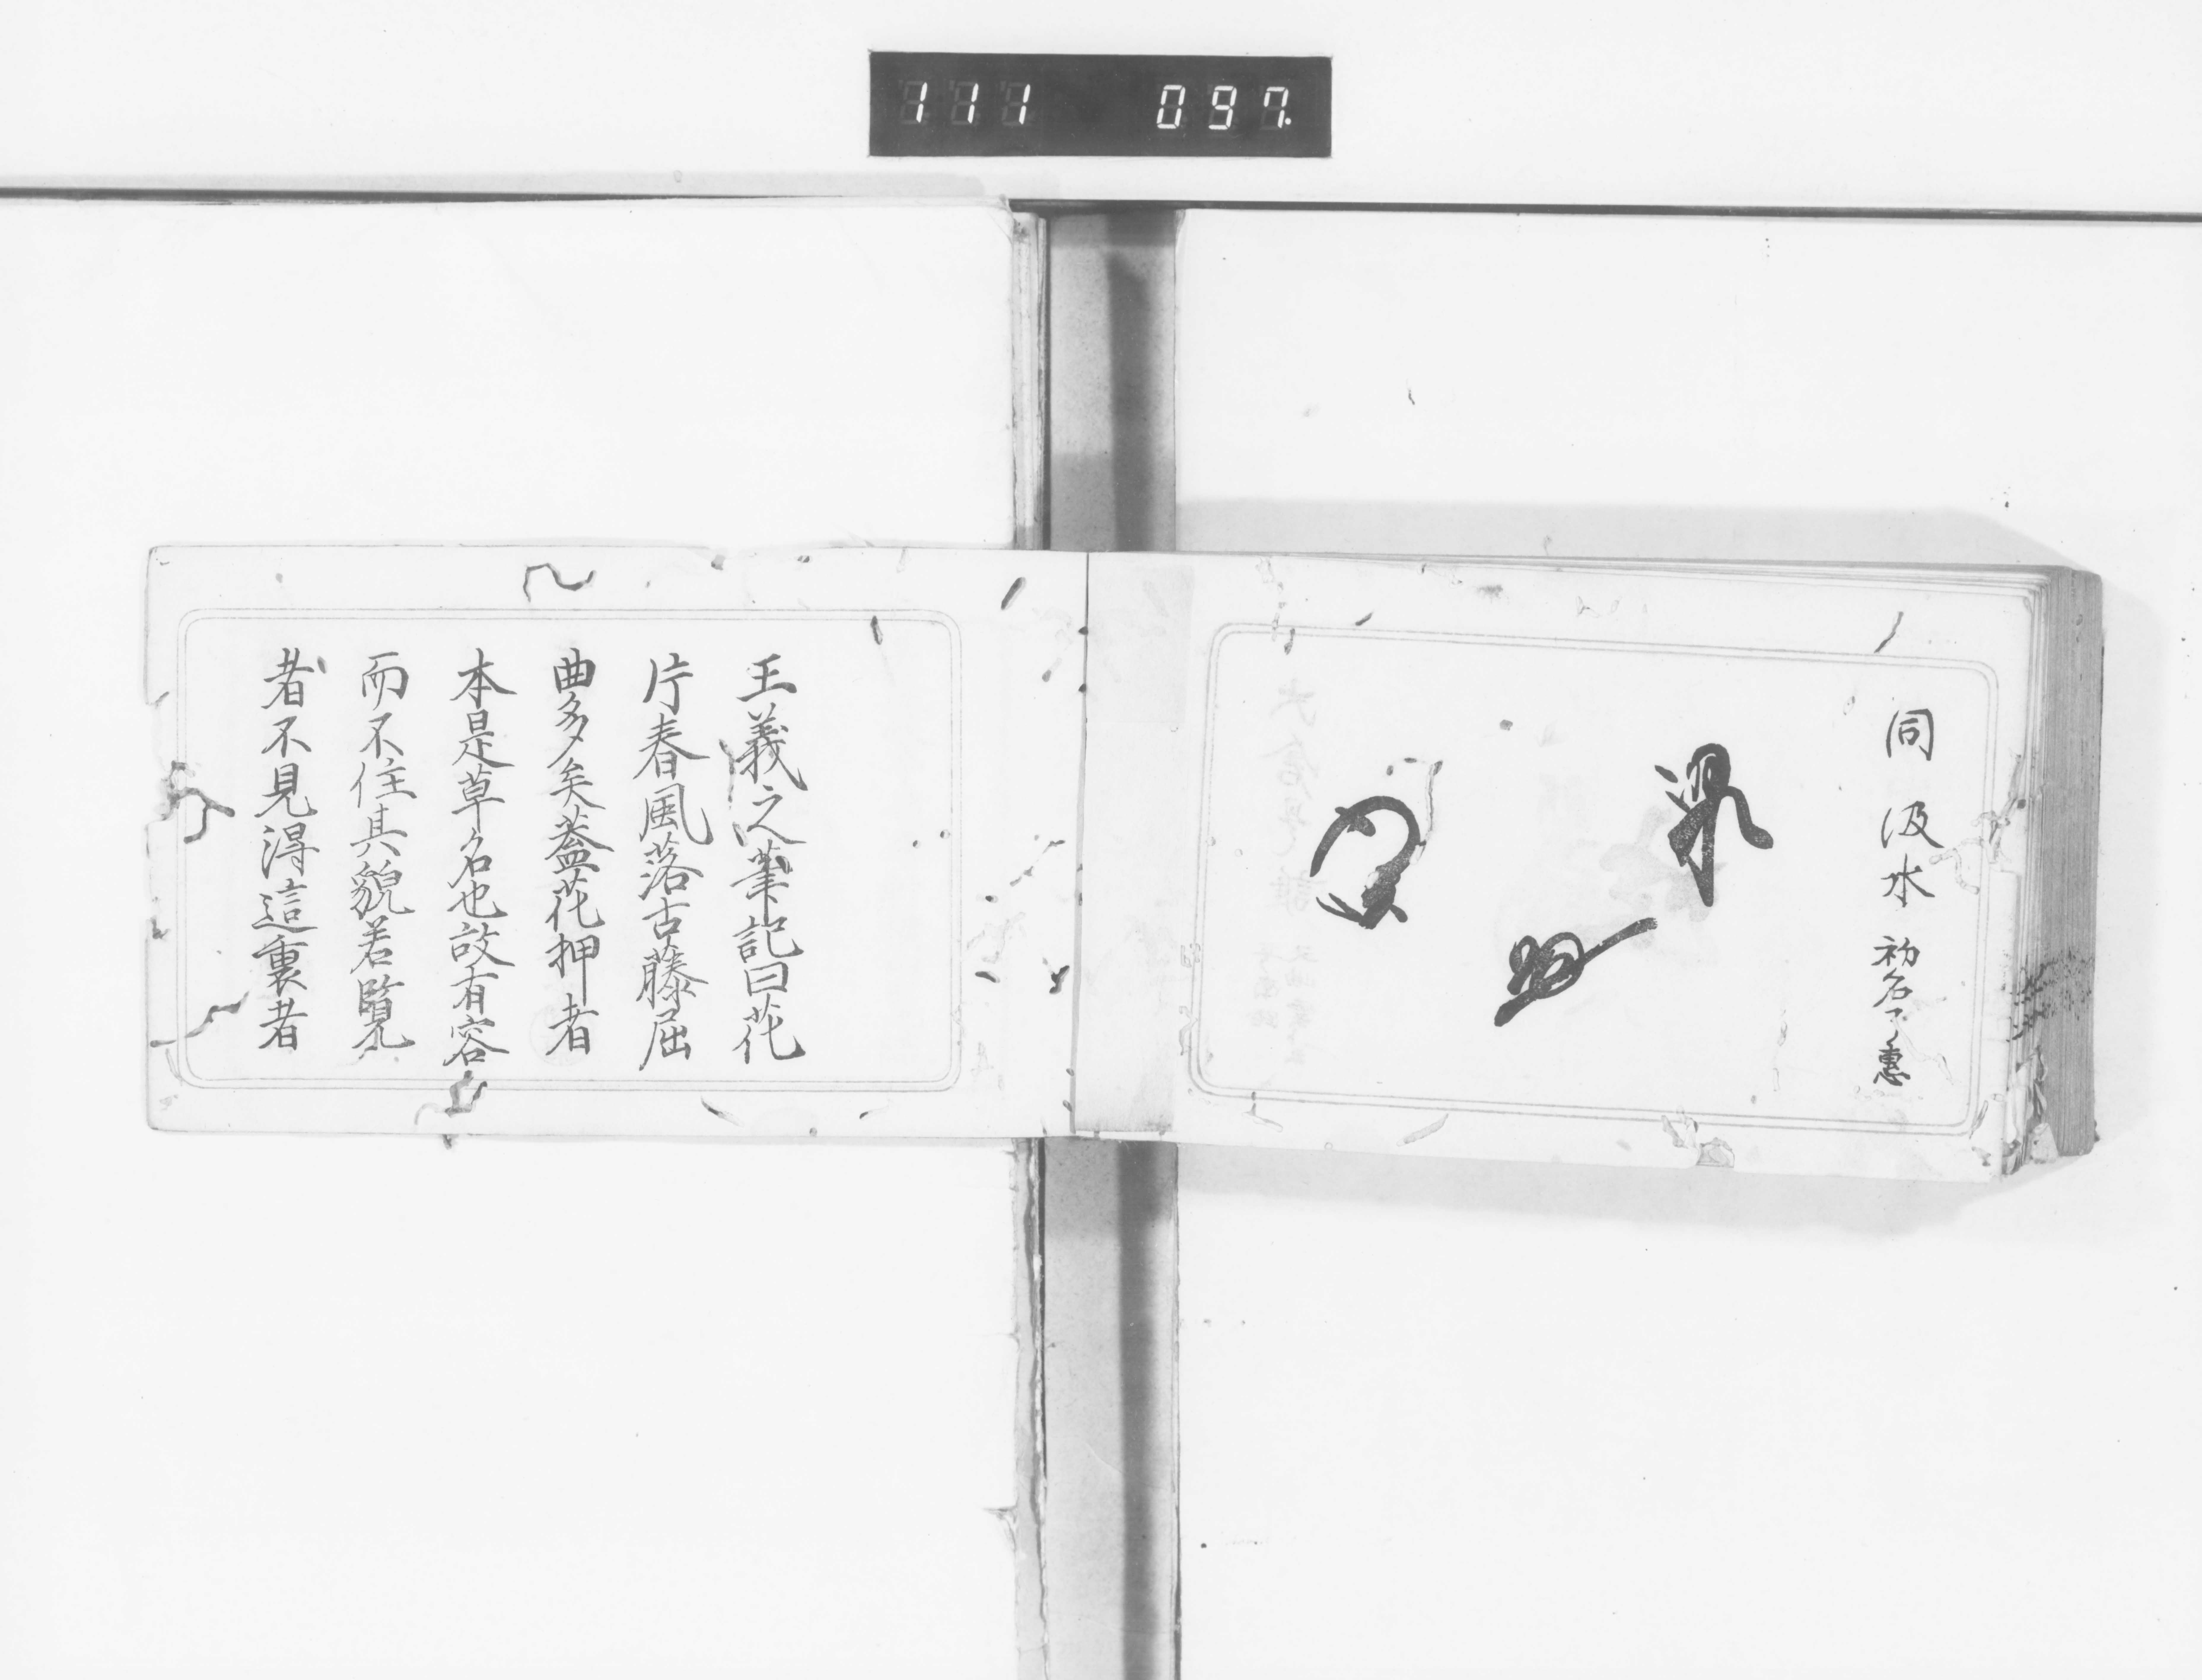 111 097.
同汲水 初名了惠
王義之筆記曰花
片春風落古藤屈
曲多矣蓋花押者
本是草名也故有容
而不住其貌若覧
者不見得這裏者